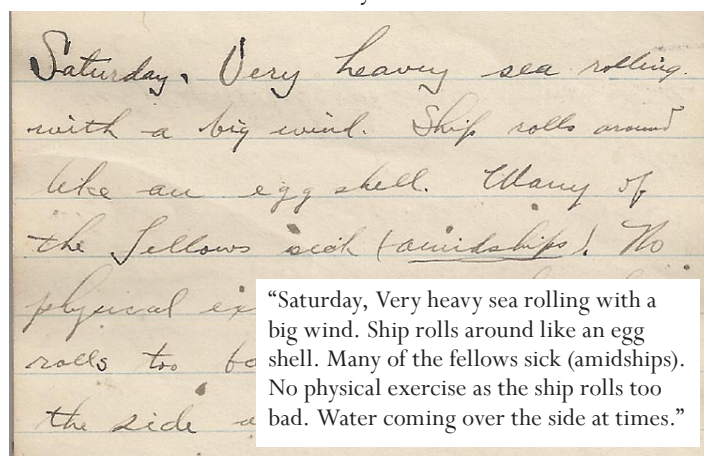 Saturday. Very heavy sea rolling.
with a big wind. Ship rolls around
like an egg shell. Many of
the fellows sick (amidships). No
physical ex
rolls too ba
the side a
“Saturday, Very heavy sea rolling with a
big wind. Ship rolls around like an egg
shell. Many of the fellows sick (amidships).
No physical exercise as the ship rolls too
bad. Water coming over the side at times.”